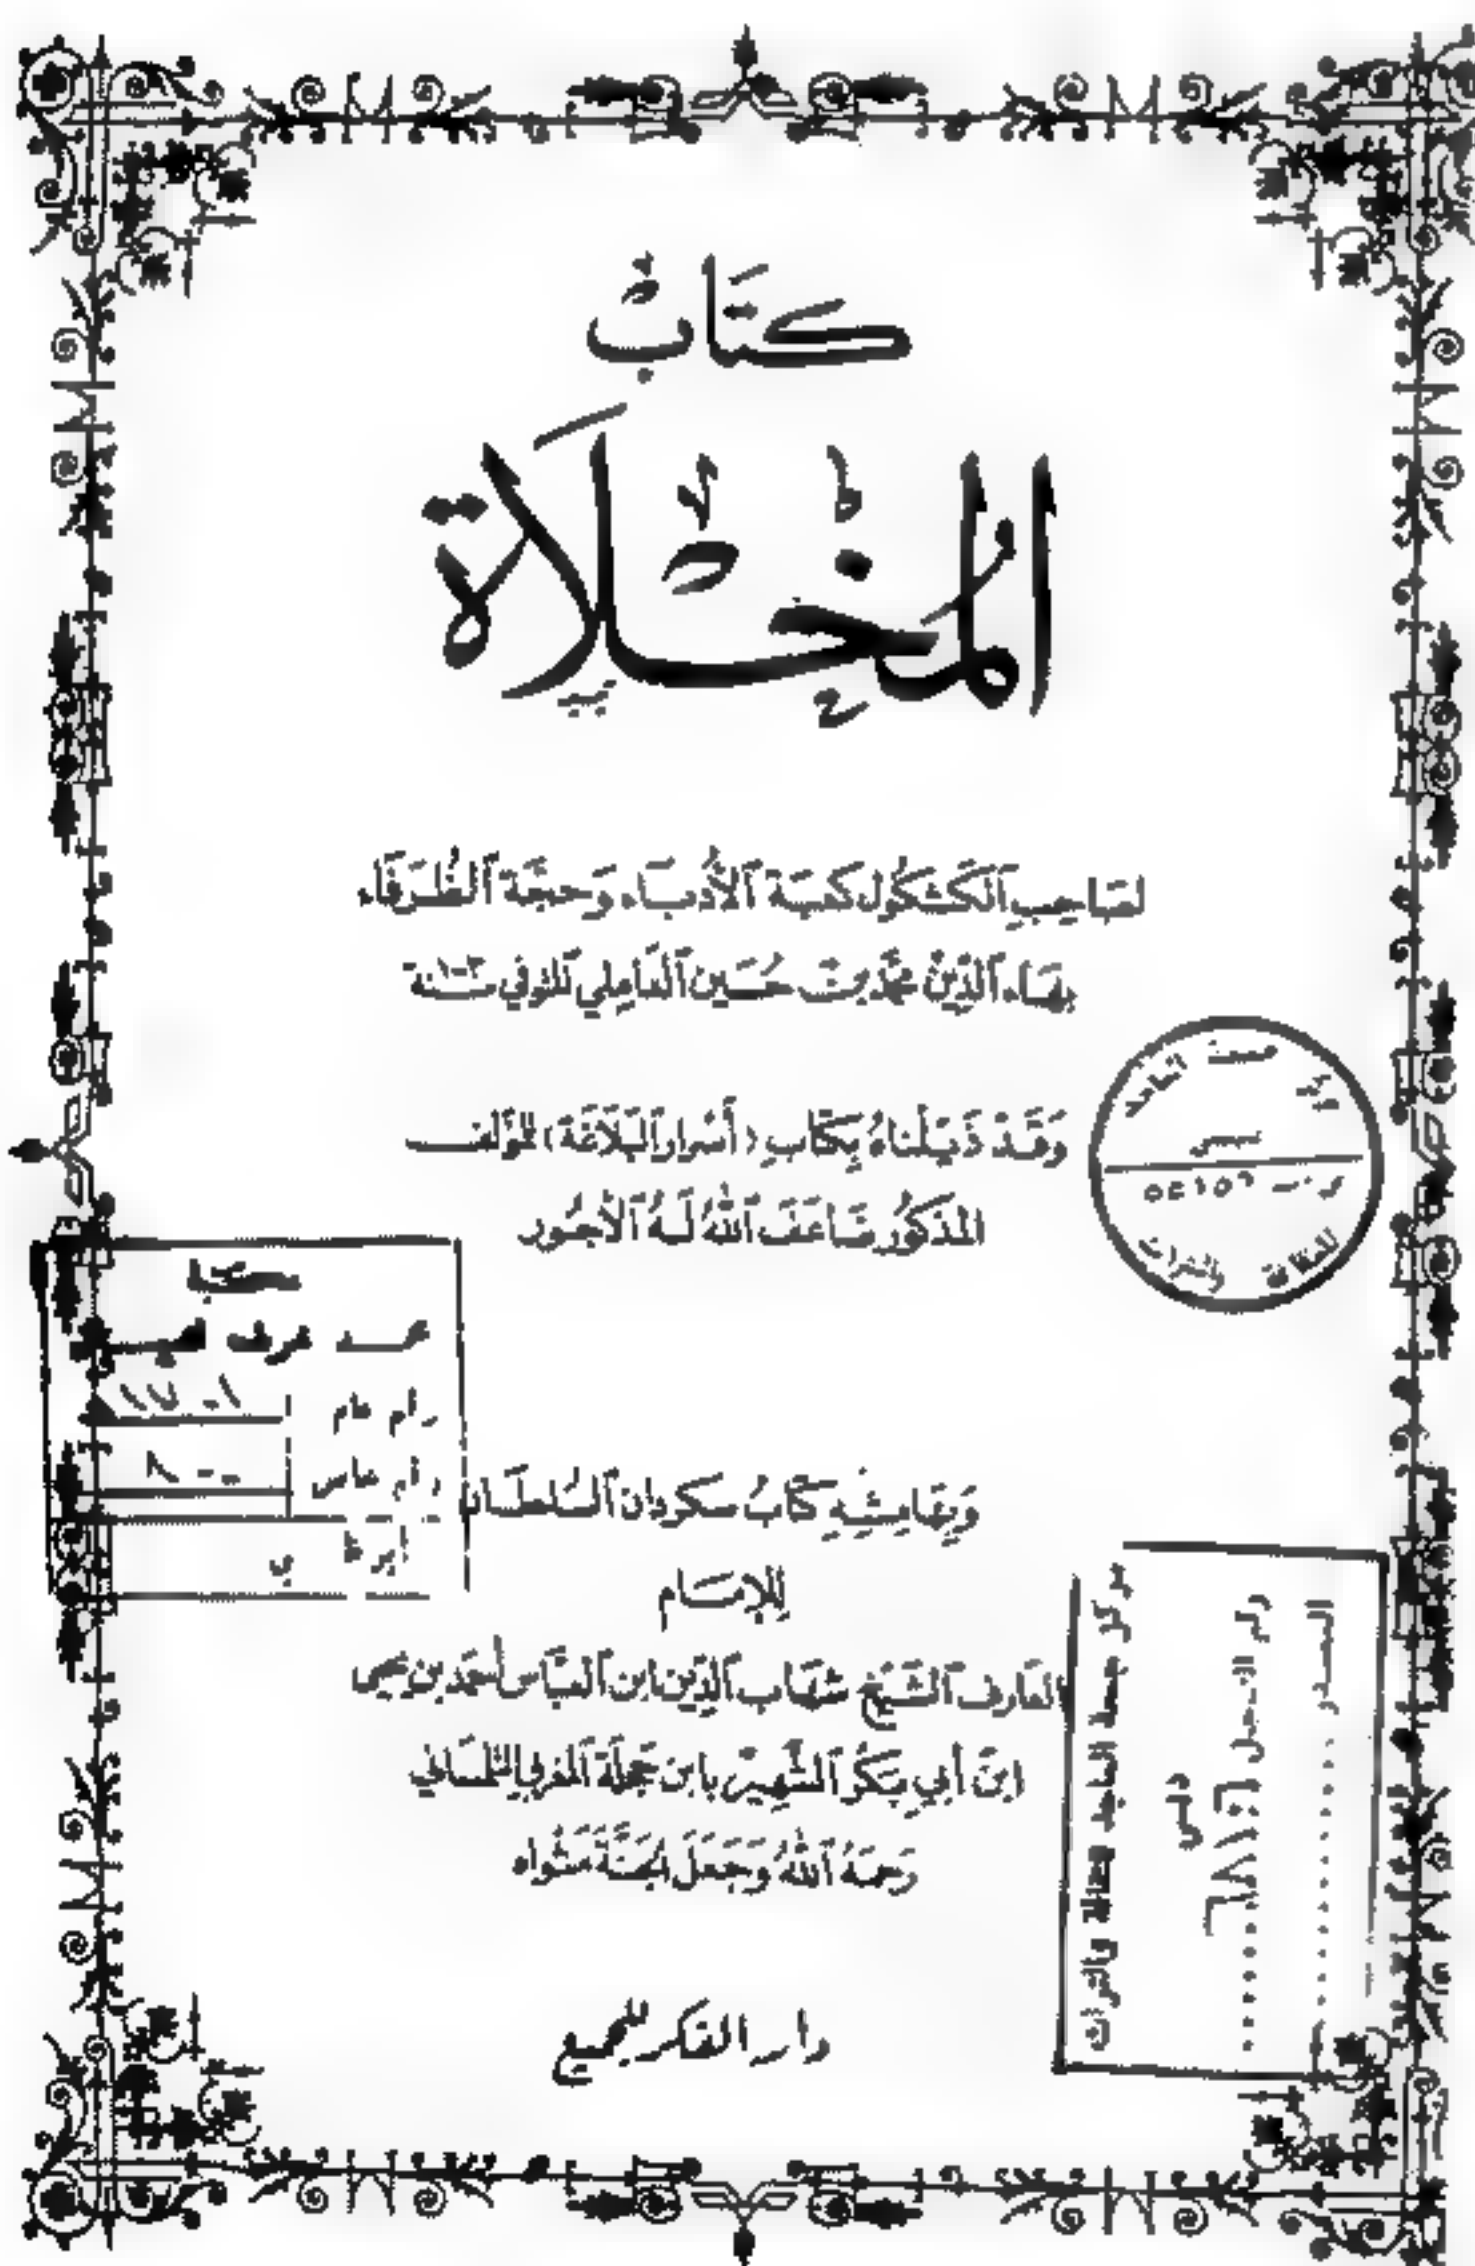 كتَابُ
المُخْلَاة
لصَاحِبِ الكَشكُول كعبَة الأُدبَاء وَحجَّة الظُرَفَاء
بهَاء الدِّين محمَّد بن حُسَين العَاملي المتوفي سَنة ١٠٠٣
وَقَد ذَيَّلناهُ بكتَابِ (أسرار البَلَاغَة) للمؤلف
المذكُور ضَاعَفَ اللهُ لَهُ الأجُور
وَبهَامِشِهِ كتَابُ سكردان السُلطَان
لِلإمَام
العَارف الشَيخ شهَاب الدِّين ابن العبَّاس أحمَد بن يَحيى
ابن أبي بَكر الشَهير بابن حَجلَة المغربي التلمسَاني
رَحمَهُ اللهُ وَجَعَلَ الجَنَّةَ مَثواه
دار الفكر للجميع
جمعة الماجد
دبي
ص.ب ٥٥١٥٦
للثقافة والتراث
محمد
رقم عام
رقم خاص
مركز جمعة الماجد للثقافة والتراث
دبي
رقم السجل
المصدر